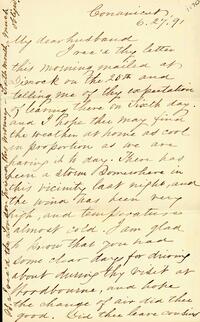 Conanicut
6.27.'91
My dear husband
I rec'd thy letter
this morning mailed at
Dimock on the 25th and
telling me of thy expectation
of leaving there on Sixth day.
and I hope thee may find
the weather at home as cool
in proportion as we are
having it to day. There has
been a storm somewhere in
this vicinity last night, and
the wind has been very
high, and temperature
almost cold. I am glad
to know that you had
some clear days for driving
about during thy visit at
Woodbourne, and hope
the change of air did thee
good. Did thee leave cousins